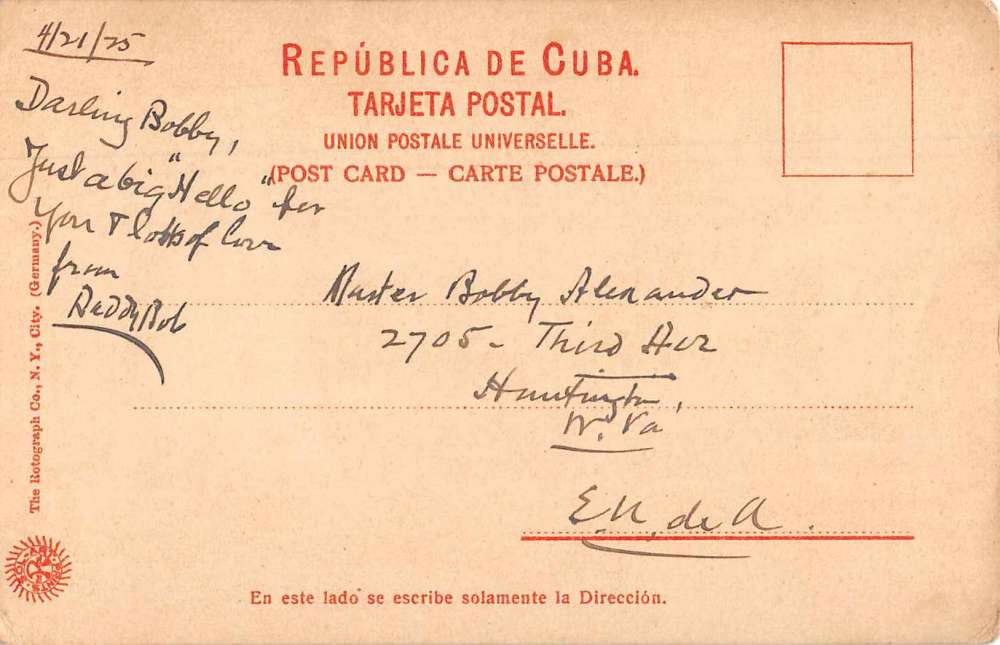 4/21/25
REPÚBLICA DE CUBA.
TARJETA POSTAL.
UNION POSTALE UNIVERSELLE.
(POST CARD — CARTE POSTALE.)
Darling Bobby,
Just a big "Hello" for
you & lotts of love
from
DaddyBob
Master Bobby Alexander
2705 - Third Ave
Huntington,
W. Va
E.U. de A.
The Rotograph Co., N. Y., City. (Germany.)
En este lado se escribe solamente la Dirección.